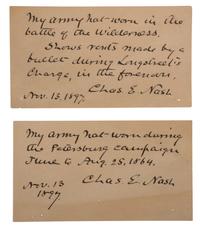 My army hat worn in the
battle of the Wilderness.
Shows rents made by a
bullet during Longstreet's
charge, in the forenoon.
Nov. 13, 1897. Chas. E. Nash
My army hat worn during
the Petersburg campaign
June to Aug. 25, 1864.
Nov. 13 Chas. E. Nash
1897